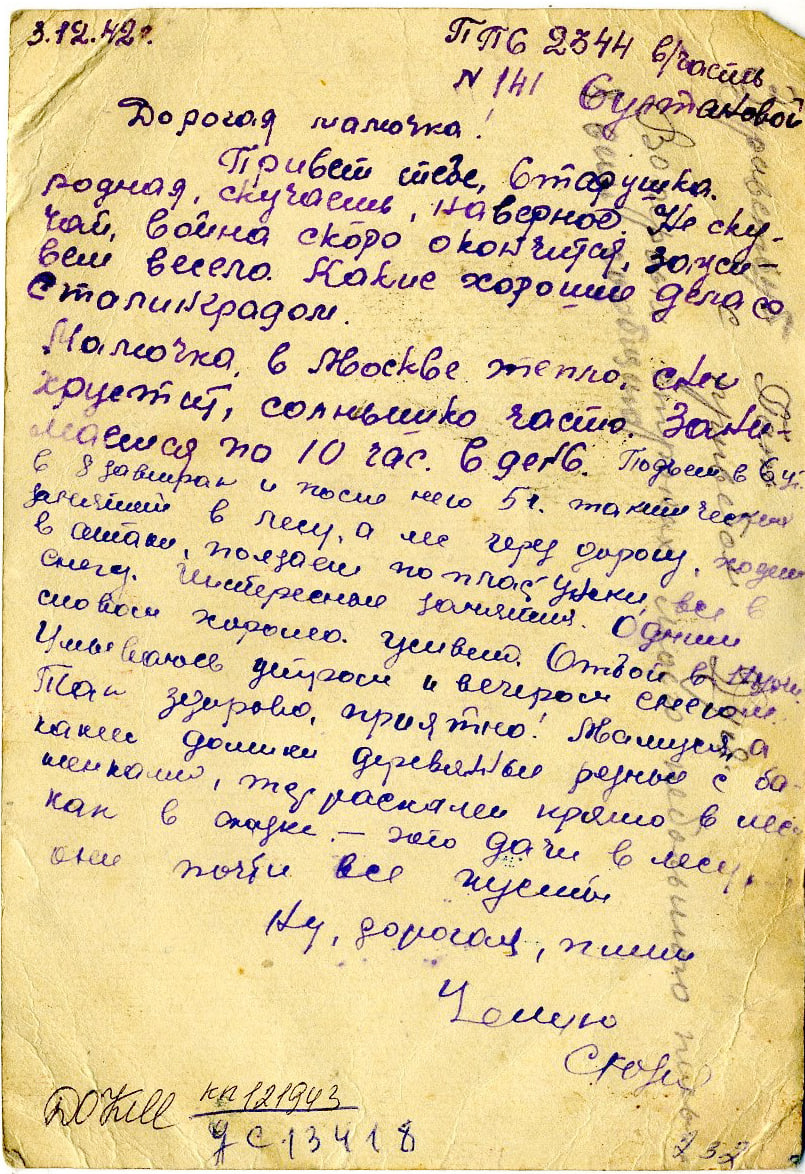 3.12.42г.
ППС 2344 в/часть
N 141 Султановой
Дорогая мамочка!
Привет тебе, Старушка.
родная, скучаешь, наверное. Не ску-
чай, война скоро окончится, зажи-
вем весело. Какие хорошие дела со
Сталинградом.
Мамочка, в Москве тепло, снег
хрустит, солнышко часто. Зани-
маемся по 10 час. в день. Подъем в 6 ч.
в 8 завтрак и после него 5 г. тактических
занятий в лесу, а лес через дорогу, ходим
в атаки, ползаем по пластунски, все в
снегу. Интересные занятия. Одним
словом хорошо живем. Отбой в
Умываюсь утром и вечером снегом.
Так здорово, приятно! Мамуся, а
какие домики деревянные резные с ба-
шенками, террасками прямо в лесу
как в сказке. – это дачи в лесу,
они почти все пусты
Ну, дорогая, пиши
Целую
Сюзи
ДОКМ КП121943
ДС13418
232